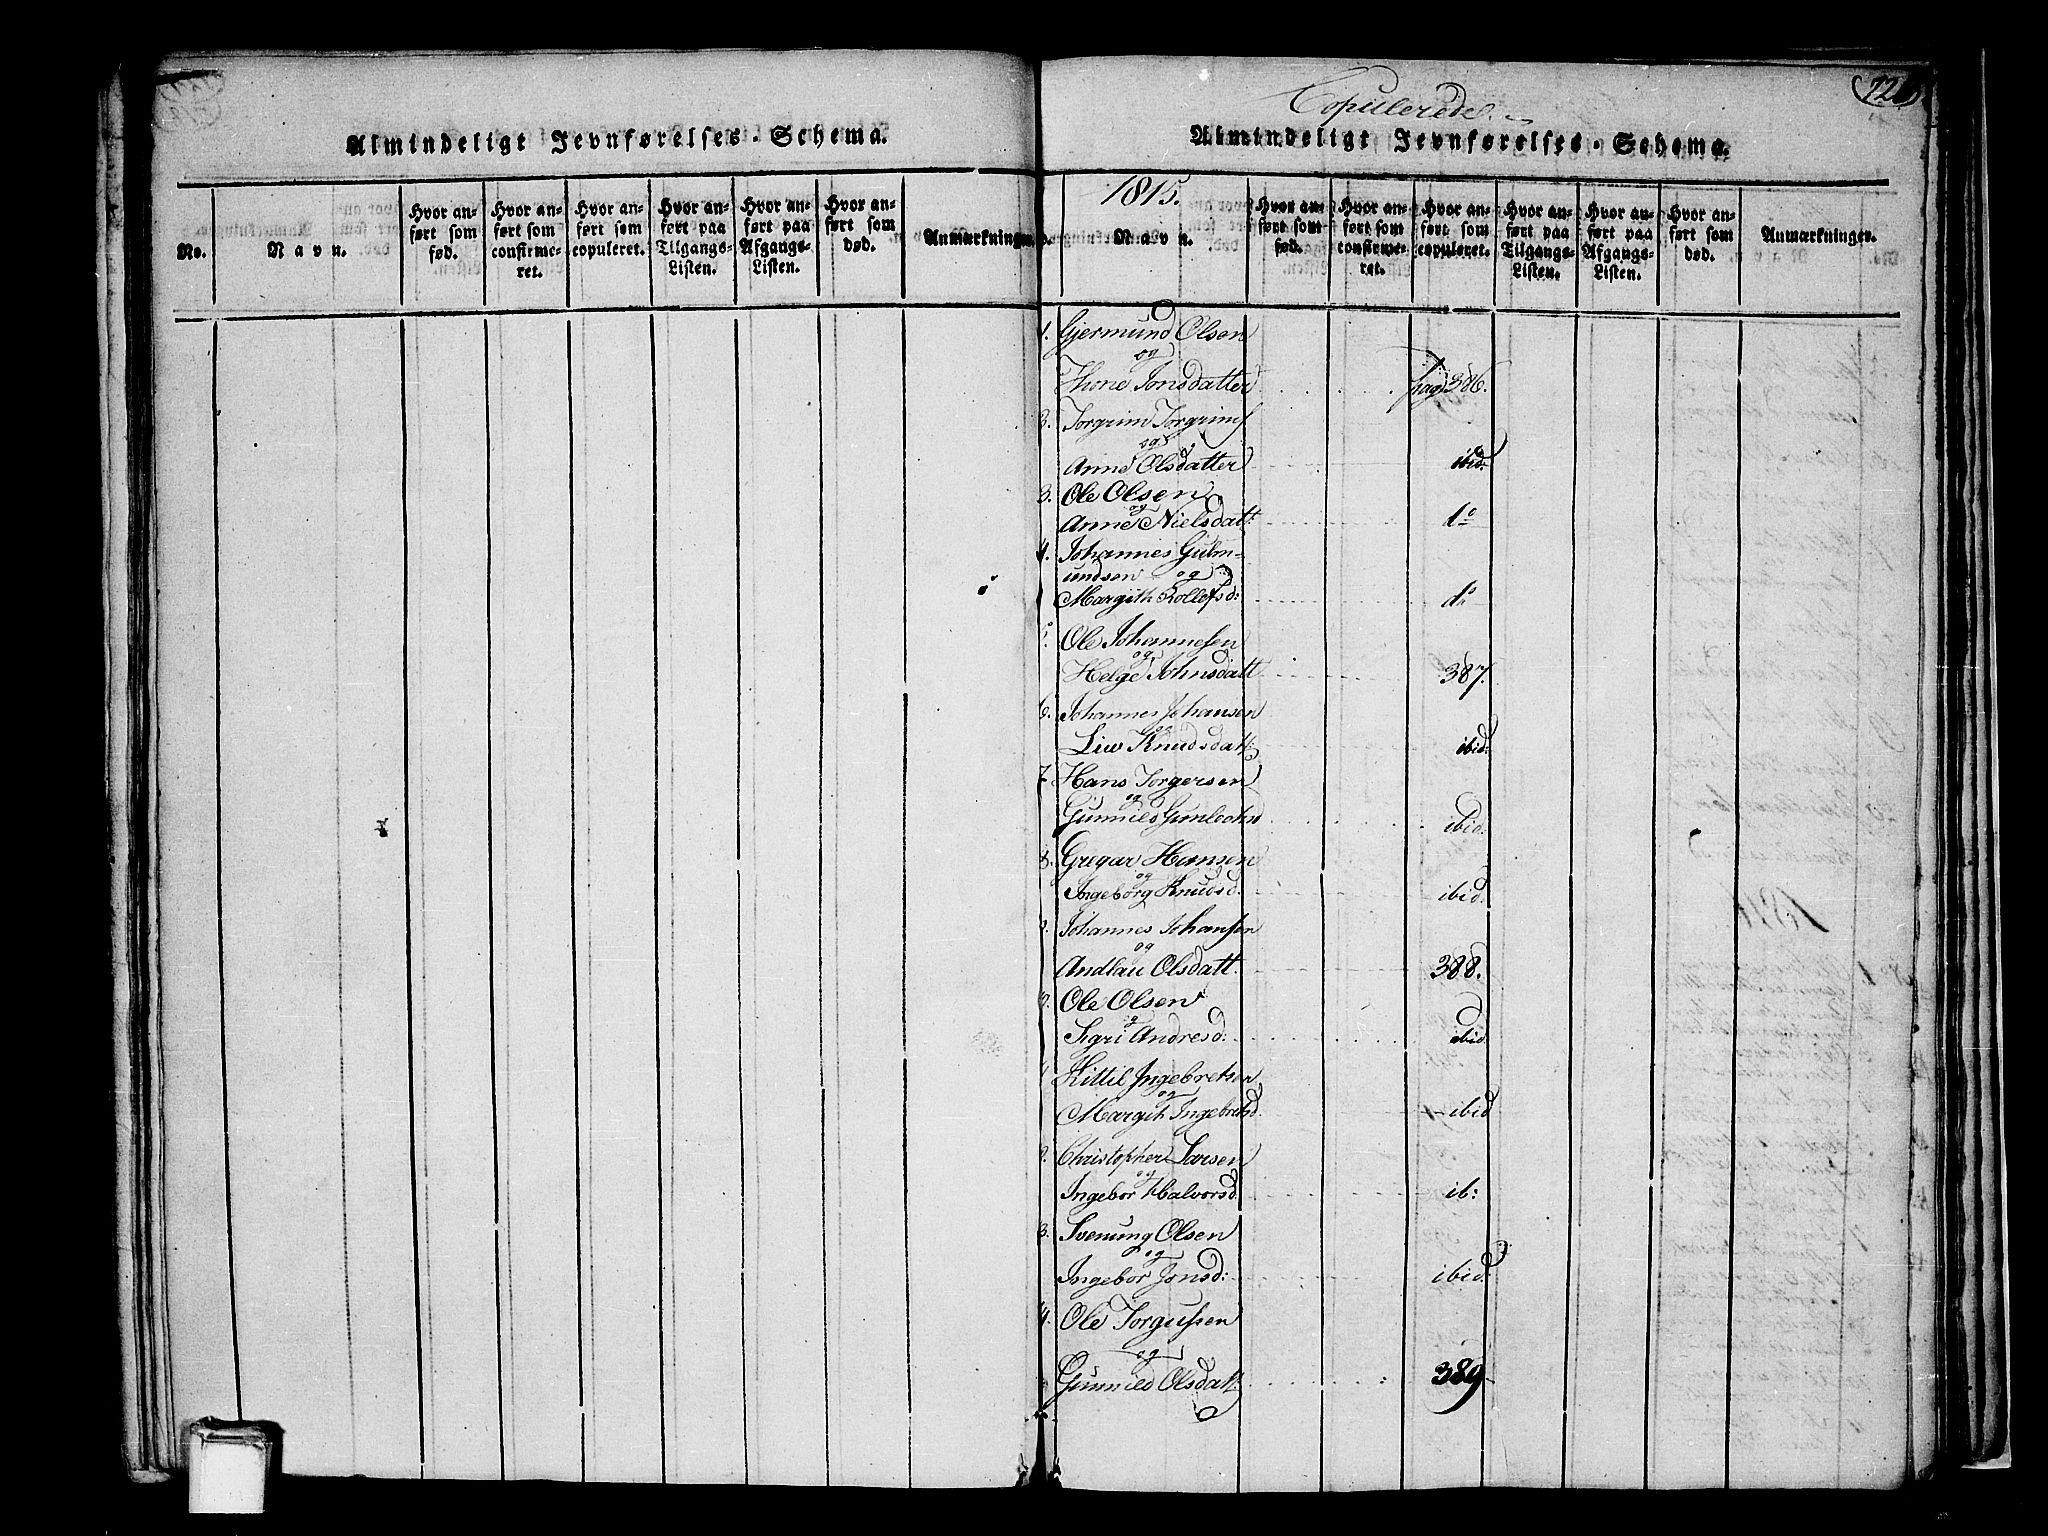 Almindeligt Jevnførelses-Schema.
No.
Navn.
Hvor anført som fød.
Hvor anført som confirmeret.
Hvor anført som copuleret.
Hvor anført paa Tilgangs-Listen.
Hvor anført paa Afgangs-Listen.
Hvor anført som død.
Anmærkninger.
Copulerede.
72
Almindeligt Jevnførelses-Schema.
1815.
Navn.
Hvor anført som fød.
Hvor anført som confirmeret.
Hvor anført som copuleret.
Hvor anført paa Tilgangs-Listen.
Hvor anført paa Afgangs-Listen.
Hvor anført som død.
Anmærkninger.
1. Gjermund Olsen
og
Thone Jonsdatter pag 386.
2. Torgrim Torgrims
og
Anne Olsdatter ibid:
3. Ole Olsen
og
Anne Nielsdatt: do
4. Johannes Gulm-
undsen og
Margith Rollefsd: do
5. Ole Johannesen
og
Helge Johnsdatt 387.
6. Johannes Johansen
og
Liw Knudsdatt: ibid:
7. Hans Torgersen
og
Gunnild Gunleohsd ibid.
8. Gregar Hansen
og
Ingeborg Knudsd. ibid.
9. Johannes Johansen
og
Andlau Olsdatt. 388.
0. Ole Olsen
og
Sigri Andresd: ibid
Kittil Ingebretsen
og
Margith Ingebretsd. ibid
2. Christopher Larsen
og
Ingebor Halvorsd. ib:
3. Svenung Olsen
og
Ingebor Jonsd: ibid:
4. Ole Torgussen
og
Gunnild Olsdatt. 389